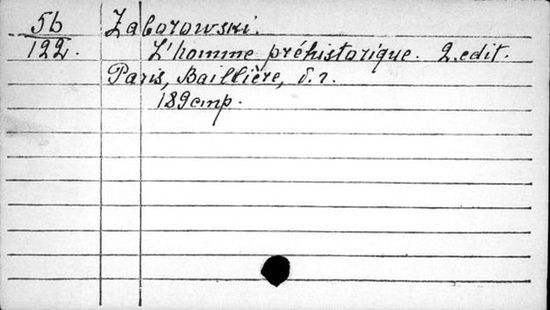 56 Zaborowski.
122. L'homme préhistorique. 2.edit.
Paris, Baillière, б. г.
189cmp.